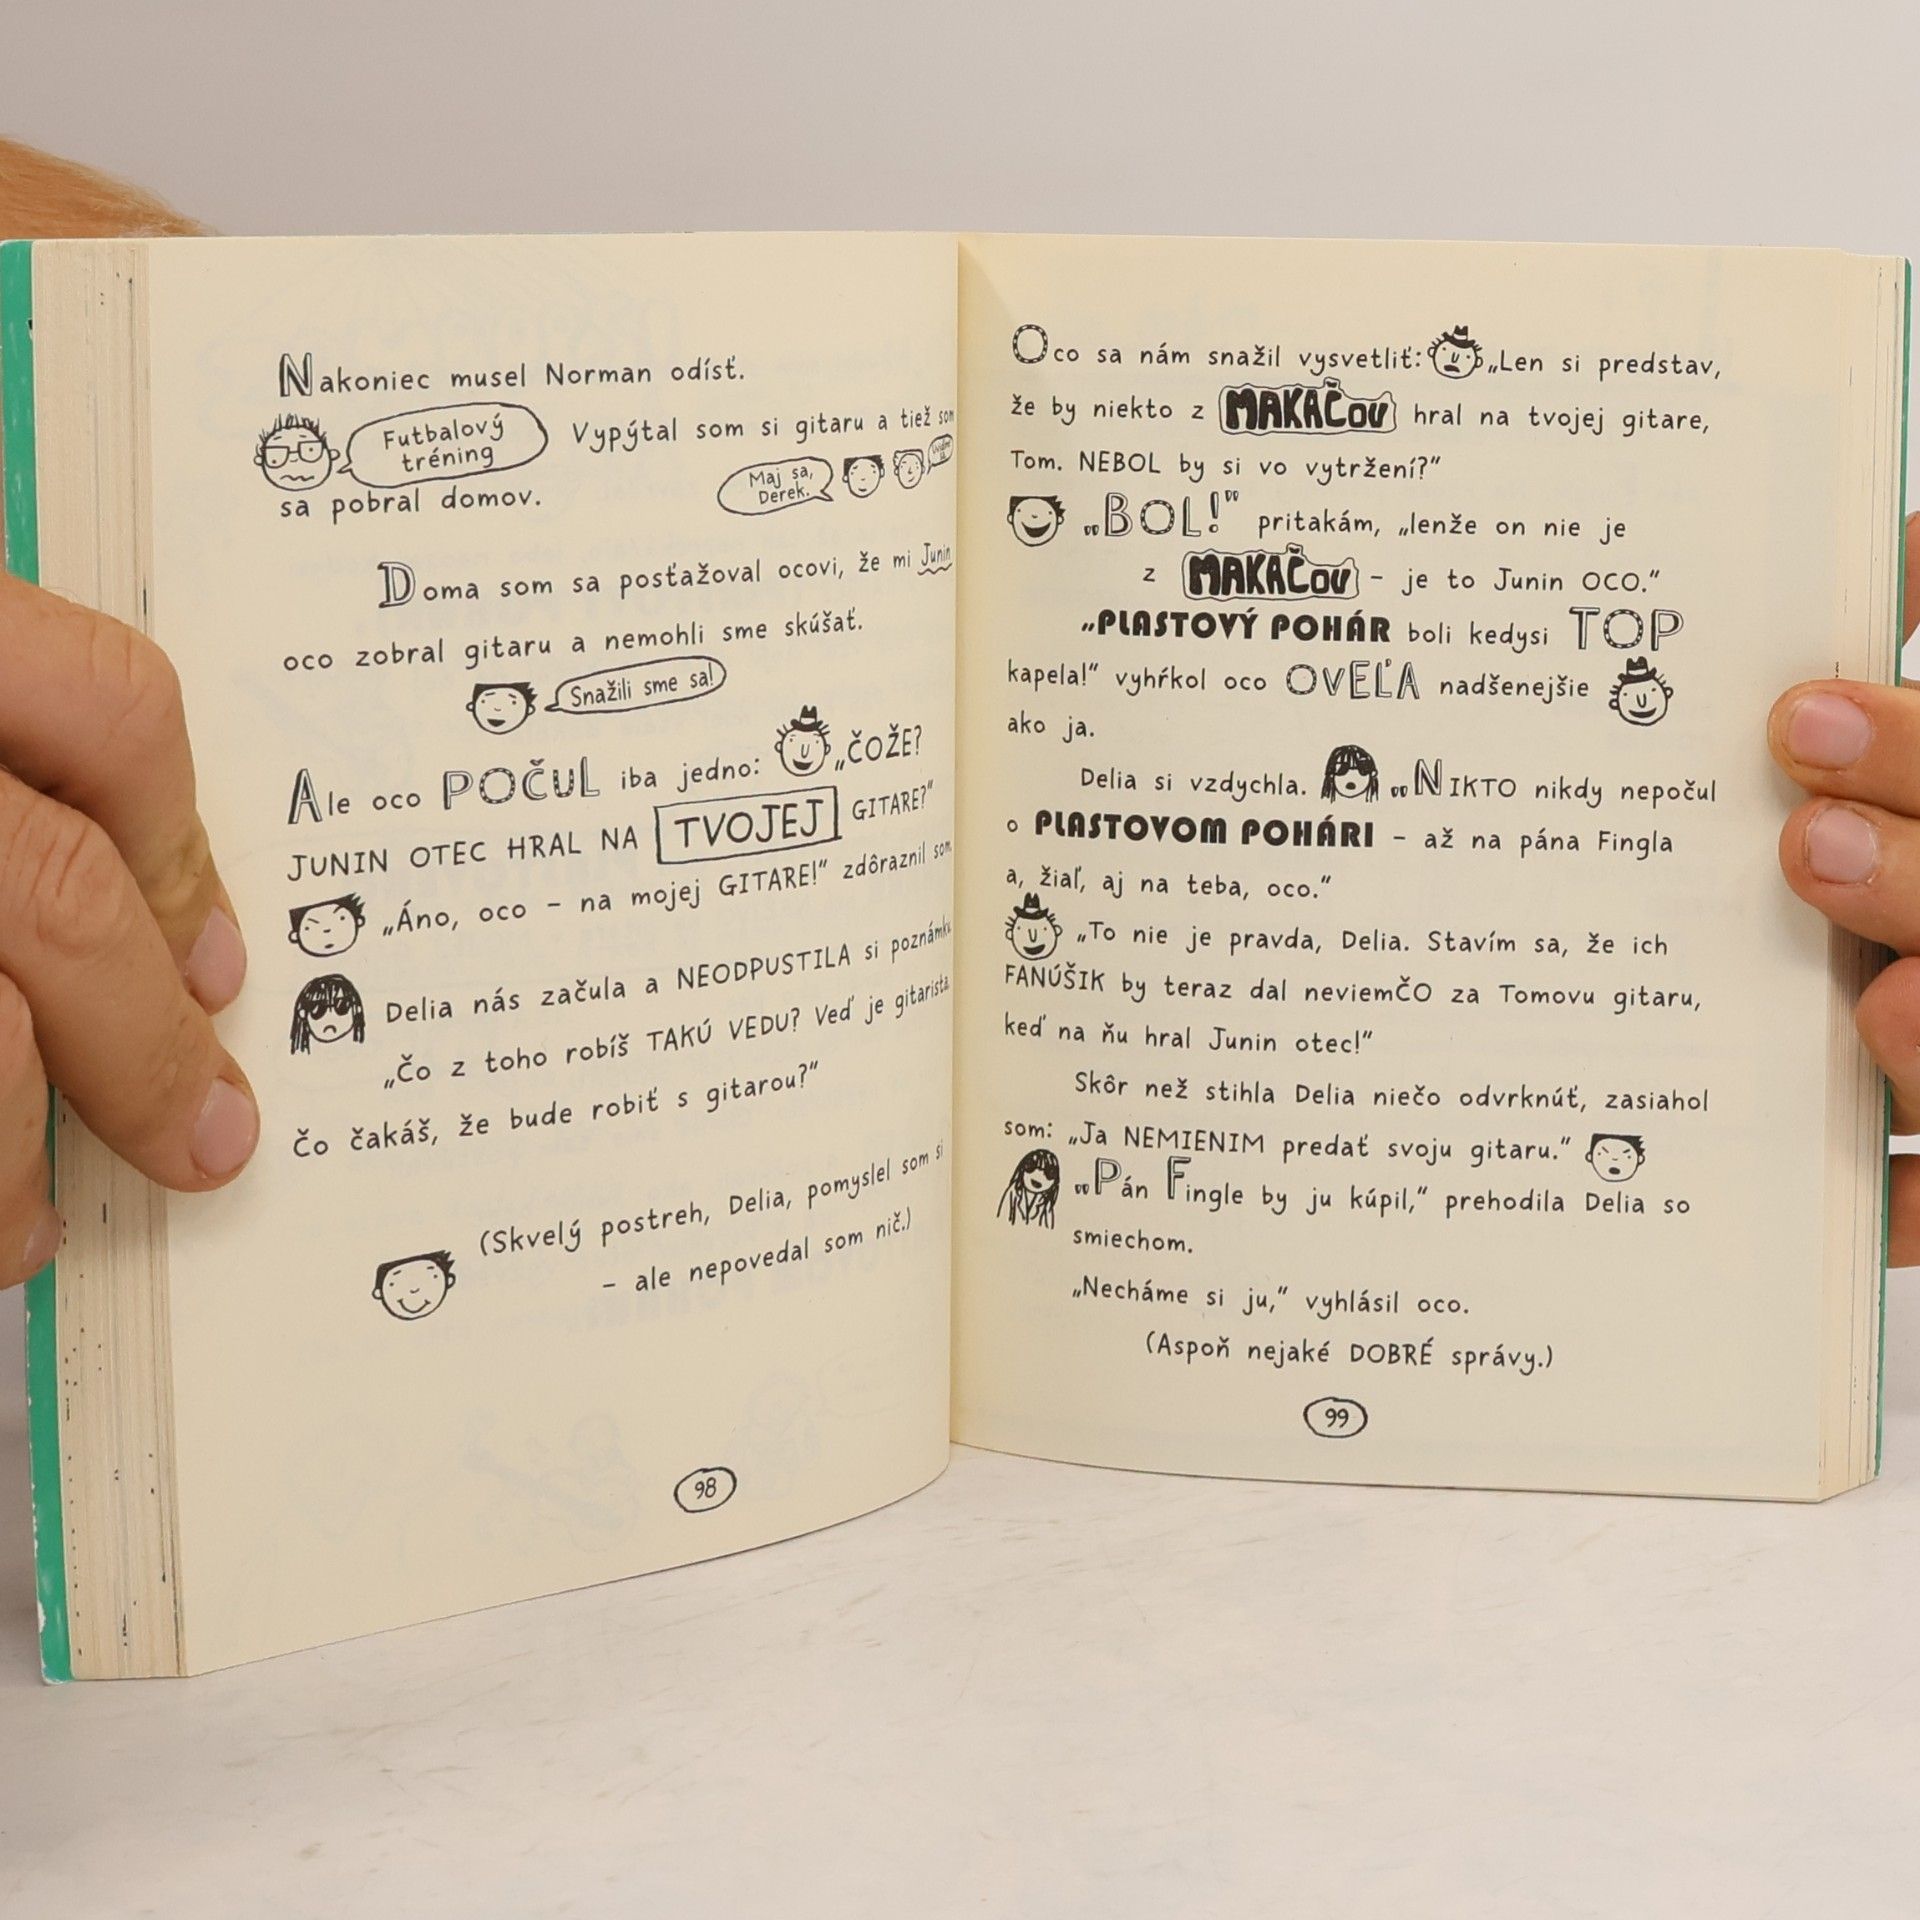 Nakoniec musel Norman odísť.
Futbalový
tréning
Vypýtal som si gitaru a tiež som
Maj sa,
Derek.
sa pobral domov.
Doma som sa posťažoval ocovi, že mi Junin
oco zobral gitaru a nemohli sme skúšať.
Snažili sme sa!
Ale oco POČUL iba jedno: „ČOŽE?
JUNIN OTEC HRAL NA TVOJEJ GITARE?“
„Áno, oco – na mojej GITARE!“ zdôraznil som.
Delia nás začula a NEODPUSTILA si poznámku
„Čo z toho robíš TAKÚ VEDU? Veď je gitarista.
Čo čakáš, že bude robiť s gitarou?“
(Skvelý postreh, Delia, pomyslel som si
– ale nepovedal som nič.)
98
Oco sa nám snažil vysvetliť: „Len si predstav,
že by niekto z MAKAČov hral na tvojej gitare,
Tom. NEBOL by si vo vytržení?“
„BOL!“ pritakám, „lenže on nie je
z MAKAČov – je to Junin OCO.“
„PLASTOVÝ POHÁR boli kedysi TOP
kapela!“ vyhŕkol oco OVEĽA nadšenejšie
ako ja.
Delia si vzdychla. „NIKTO nikdy nepočul
o PLASTOVOM POHÁRI – až na pána Fingla
a, žiaľ, aj na teba, oco.“
„To nie je pravda, Delia. Stavím sa, že ich
FANÚŠIK by teraz dal neviemČO za Tomovu gitaru,
keď na ňu hral Junin otec!“
Skôr než stihla Delia niečo odvrknúť, zasiahol
som: „Ja NEMIENIM predať svoju gitaru.“
„Pán Fingle by ju kúpil,“ prehodila Delia so
smiechom.
„Necháme si ju,“ vyhlásil oco.
(Aspoň nejaké DOBRÉ správy.)
99